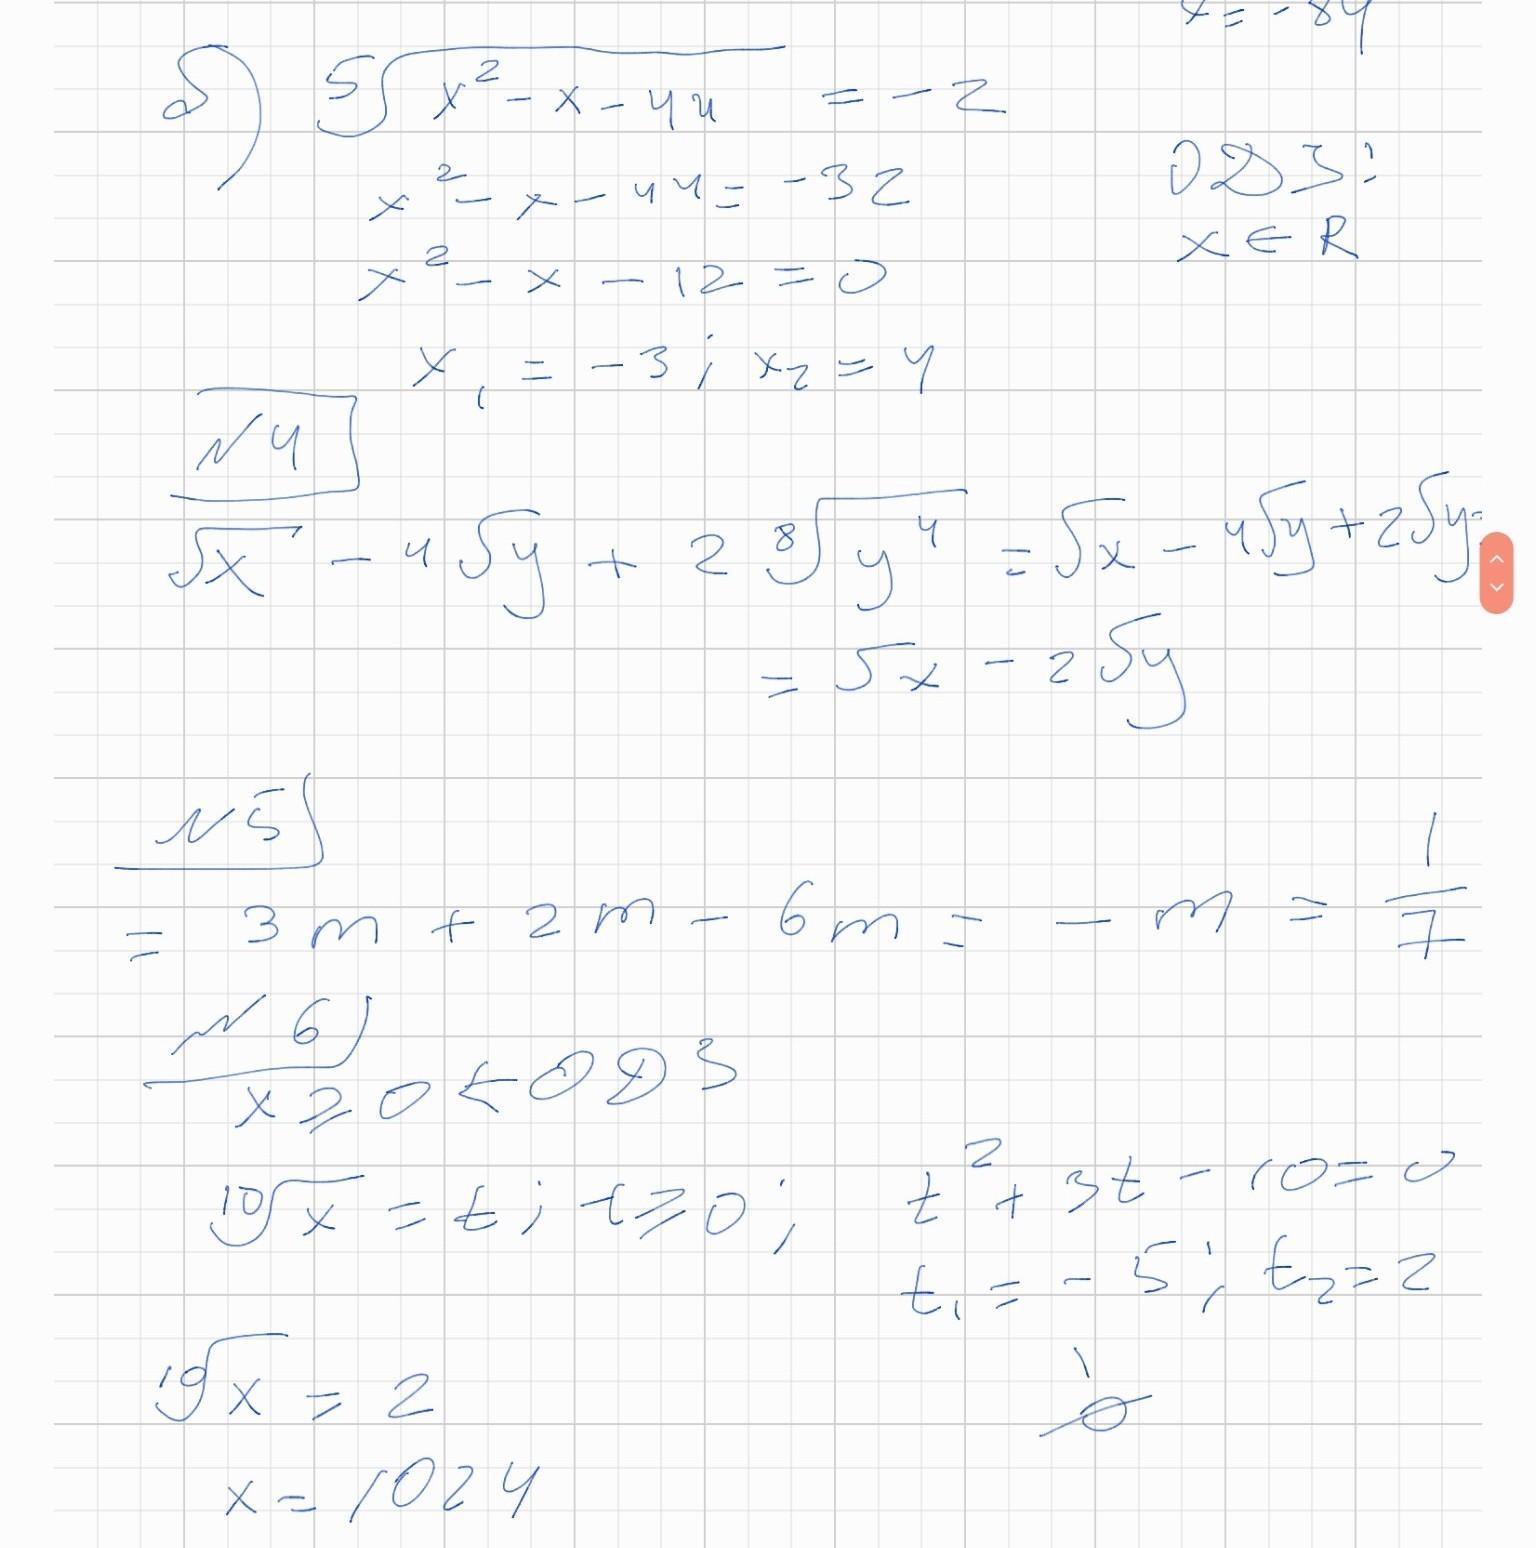 x = -84
б) ⁵√(x² - x - 44) = -2
x² - x - 44 = -32
ОДЗ:
x ∈ R
x² - x - 12 = 0
x₁ = -3; x₂ = 4
N4
√x - 4√y + 2 ⁸√(y⁴) = √x - 4√y + 2√y =
= √x - 2√y
N5
= 3m + 2m - 6m = -m = 1/7
N6
x ≥ 0 ← ОДЗ
¹⁰√x = t; t ≥ 0; t² + 3t - 10 = 0
t₁ = -5; t₂ = 2
∅
¹⁰√x = 2
x = 1024